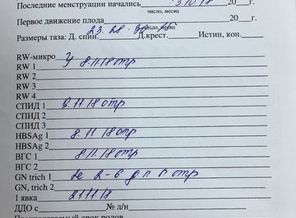 Последние менструации начались 31018 20 г.
число, месяц
Первое движение плода 20 г.
Размеры таза: Д. спин. 23. 28. Д.крест. Истин, кон.
RW-микро
RW 1 81118 отр
RW 2
RW 3
RW 4
СПИД 1 81118 отр
СПИД 2
СПИД 3
HBSAg 1 8 11 18 отр
HBSAg 2
ВГС 1 8 11 18 отр
ВГС 2
GN trich 1 2-6
GN, trich 2
1 явка 211118
ДДО с № л/н